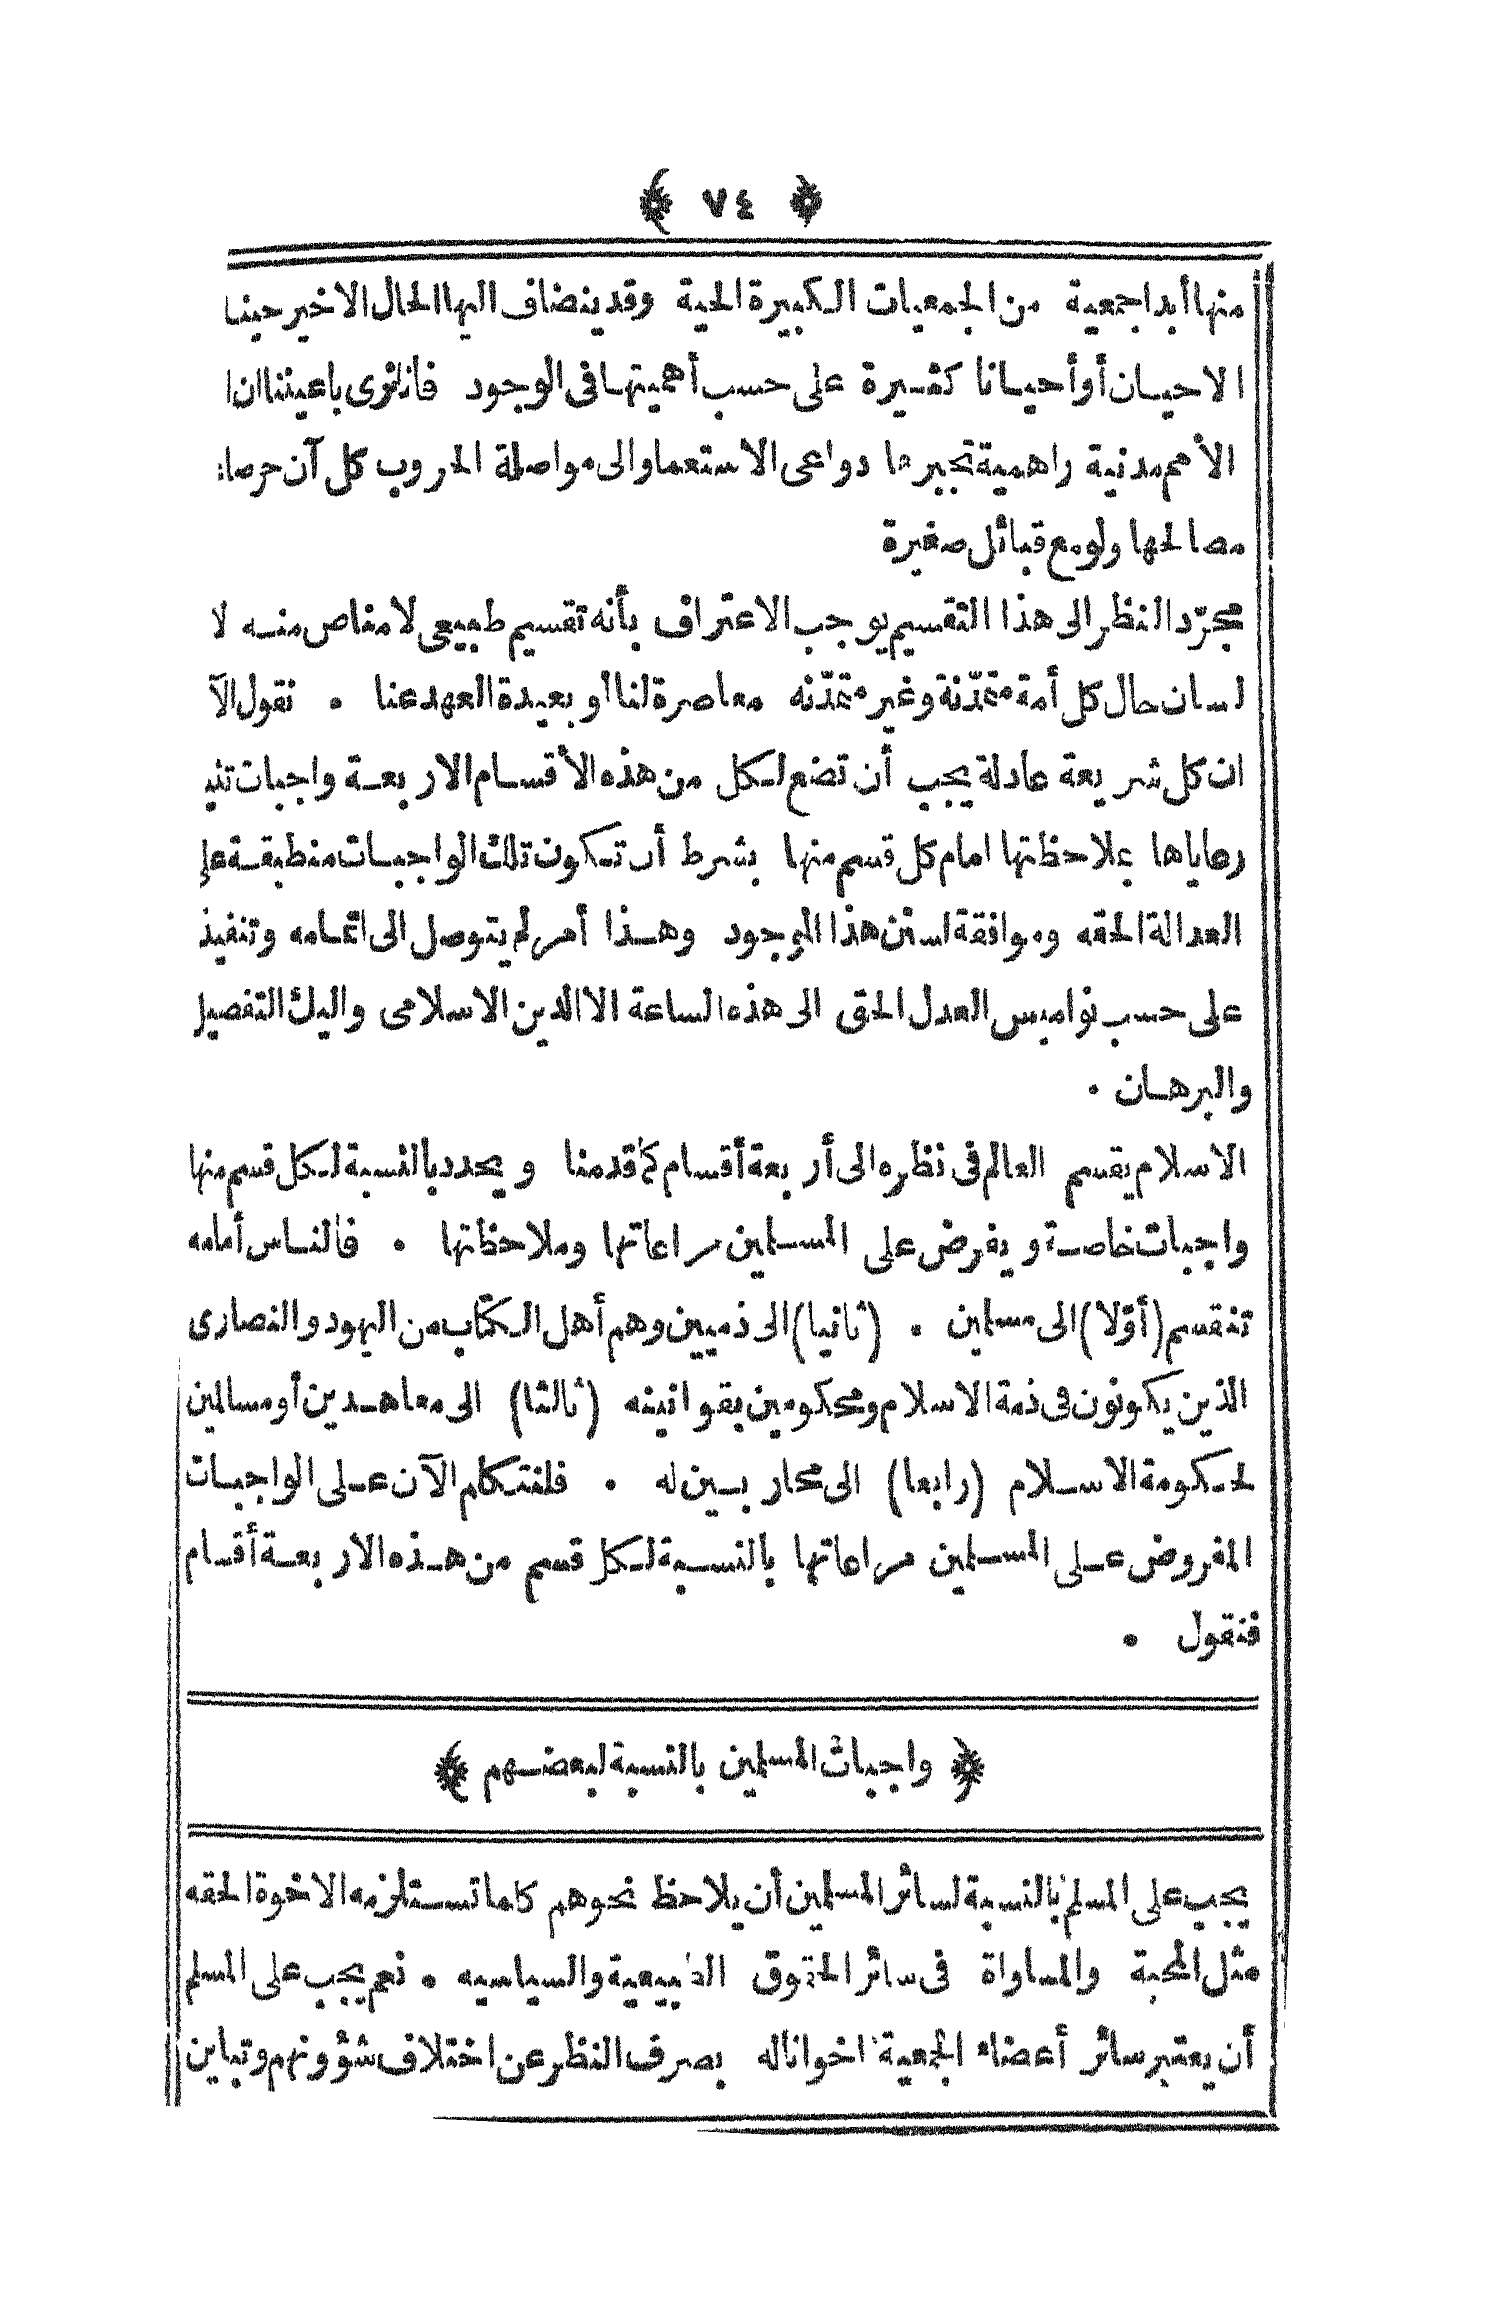 ﴿ ٧٤ ﴾
منها أبدا جمعية من الجمعيات الكبيرة الحية وقد ينضاف اليها الحال الاخير حينا
الاحيان أو أحيانا كثيرة على حسب أهميتها فى الوجود فاننا نرى باعيننا ان
الامم مدنية راهمية تجبرها دواعى الاستعمار الى مواصلة الحروب كل آن حرصا
مصالحها ولو مع قبائل صغيرة
مجرّد النظر الى هذا التقسيم يوجب الاعتراف بأنه تقسيم طبيعى لا مناص منه لا
لسان حال كل أمة متمدّنة وغير متمدّنه معاصرة لنا أو بعيدة العهد عنا • نقول الآ
ان كل شريعة عادلة يجب أن تضع لكل من هذه الأقسام الاربعة واجبات
رعاياها بملاحظتها امام كل قسم منها بشرط أن تكون تلك الواجبات منطبقة على
العدالة الحقه وموافقة لسنن هذا الوجود وهذا أمر لم يتوصل الى اتمامه وتنفيذ
على حسب نواميس العدل الحق الى هذه الساعة الا الدين الاسلامى واليك التفصيل
والبرهان •
الاسلام يقسم العالم فى نظره الى أربعة أقسام كما قدمنا ويحدد بالنسبة لكل قسم منها
واجبات خاصة ويفرض على المسلمين مراعاتها وملاحظتها • فالناس أمامه
تنقسم (أوّلا) الى مسلمين • (ثانيا) الى ذميين وهم أهل الكتاب من اليهود والنصارى
الذين يكونون فى ذمة الاسلام ومحكومين بقوانينه (ثالثا) الى معاهدين أو مسالمين
لحكومة الاسلام (رابعا) الى محاربين له • فلنتكلم الآن على الواجبات
المفروض على المسلمين مراعاتها بالنسبة لكل قسم من هذه الاربعة أقسام
فنقول •
﴿ واجبات المسلمين بالنسبة لبعضهم ﴾
يجب على المسلم بالنسبة لسائر المسلمين أن يلاحظ نحوهم كلما تستلزمه الاخوة الحقه
مثل المحبة والمساواة فى سائر الحقوق الطبيعية والسياسيه • نعم يجب على المسلم
أن يعتبر سائر أعضاء الجمعية اخوانا له بصرف النظر عن اختلاف شؤونهم وتباين